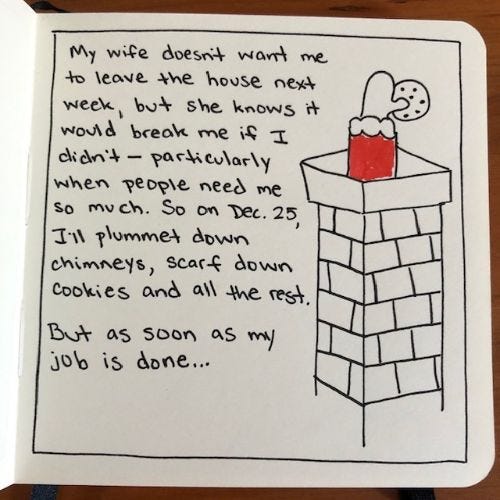 My wife doesn't want me
to leave the house next
week, but she knows it
would break me if I
didn't – particularly
when people need me
so much. So on Dec. 25,
I'll plummet down
chimneys, scarf down
cookies and all the rest.
But as soon as my
job is done...